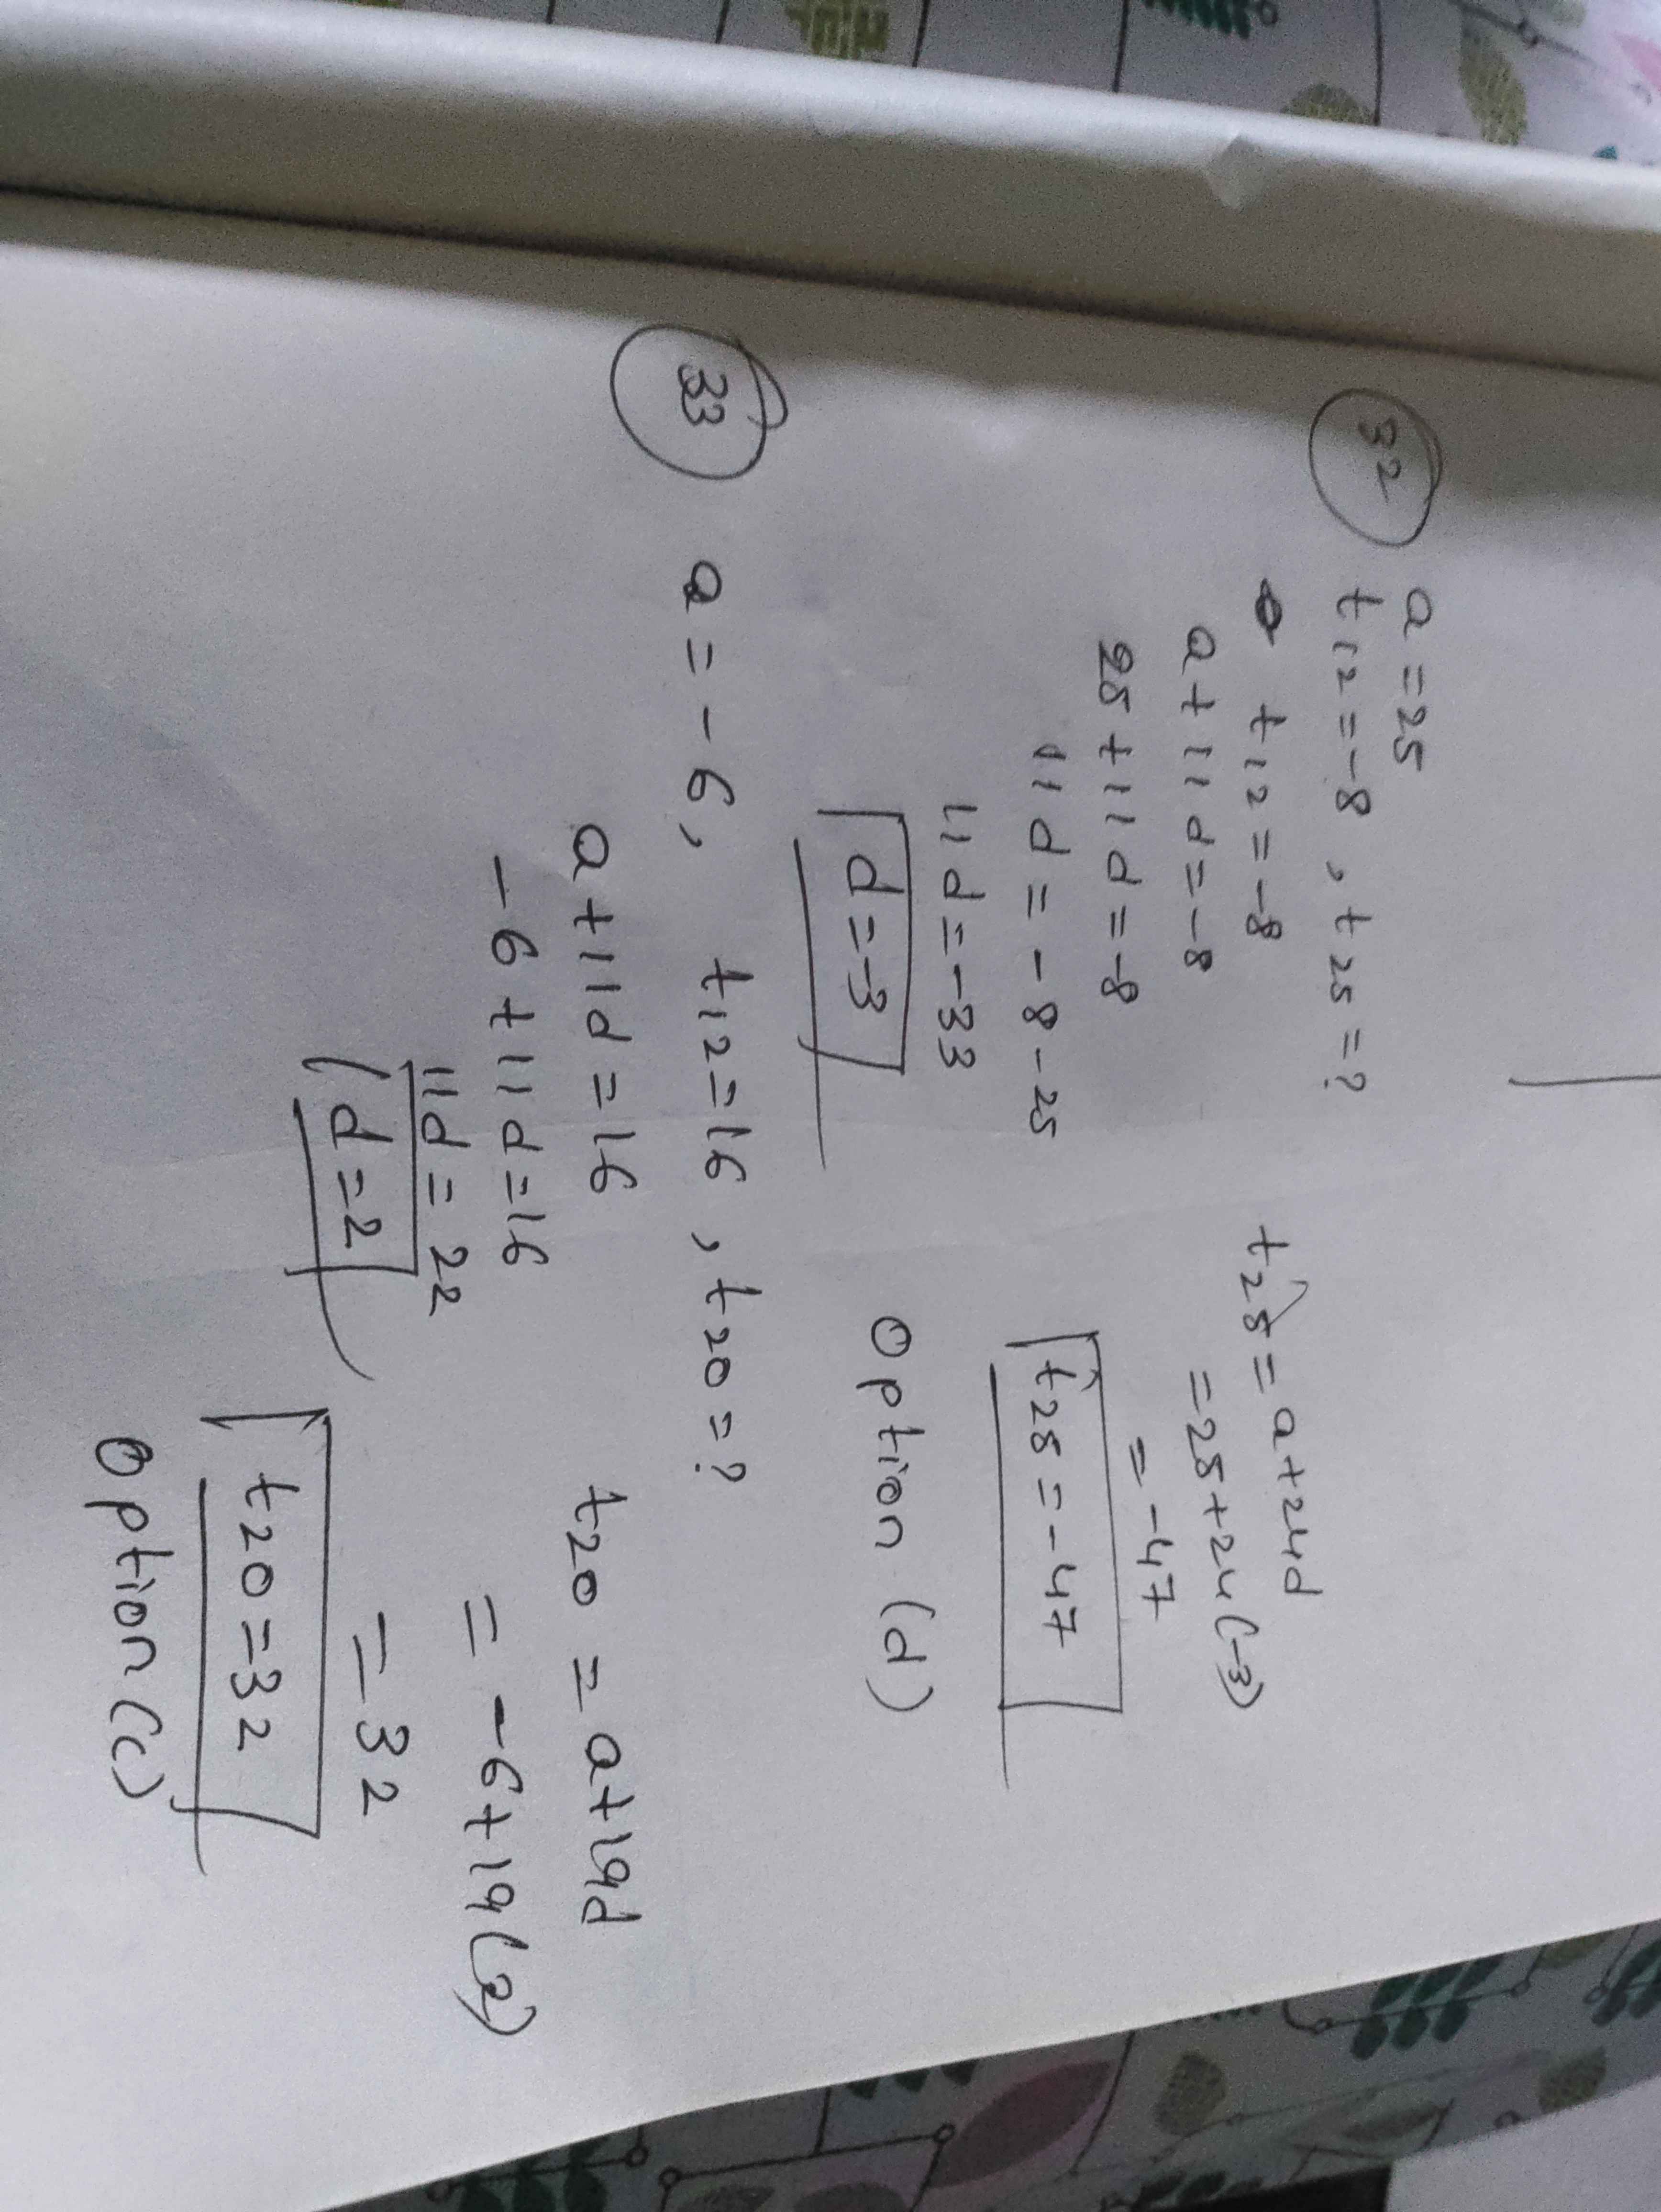 32 a = 25
t12 = -8 , t25 = ?
t12 = -8
a + 11d = -8
25 + 11d = -8
11d = -8 - 25
11d = -33
d = -3
t25 = a + 24d
= 25 + 24(-3)
= -47
t25 = -47
Option (d)
33 a = -6, t12 = 16 , t20 = ?
a + 11d = 16
-6 + 11d = 16
11d = 22
d = 2
t20 = a + 19d
= -6 + 19(2)
= 32
t20 = 32
Option (c)